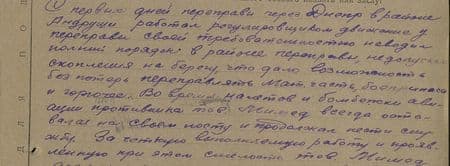 С первых дней переправы через Днепр в районе
Андруши работал регулировщиком движения у
переправы своей требовательностью наводил
полный порядок в районе переправы, недопуская
скопления на берегу, что дало возможность
без потерь переправлять Мат. часть, боеприпасы
и горючее. Во время налетов и бомбежки ави-
ации противника тов. всегда оста-
вался на своем посту и продолжал нести слу-
жбу. За четкую выполняемую работу и прояв-
ленную при этом смелость тов.